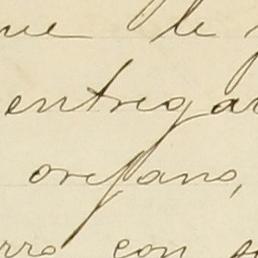 ue le
entregar
orefano,
rro con s